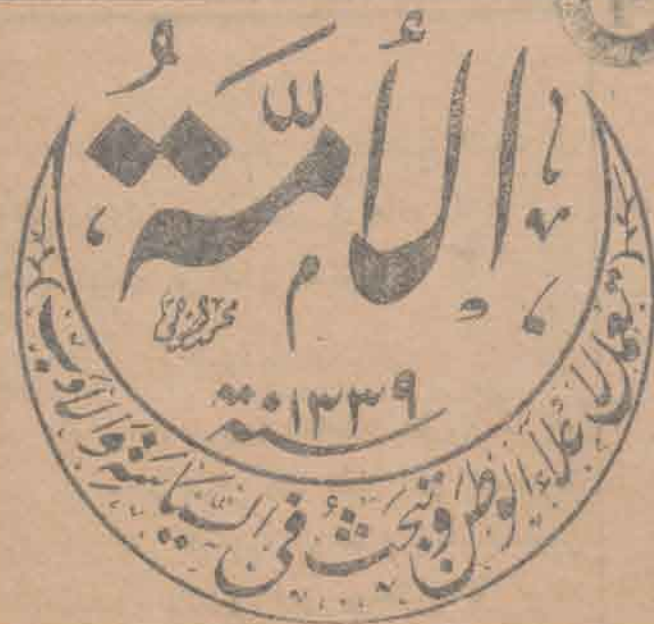 الأُمَّةُ
سنة ١٣٣٩
تعمل لاعلاء الوطن وتبحث في السياسة والأدب